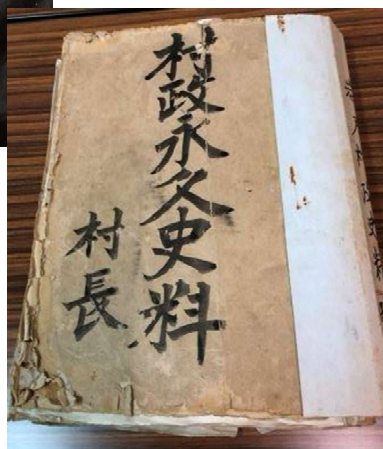 村政永久史料
村長